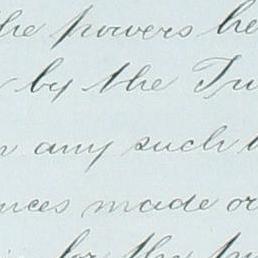 the powers he
by the Tru
any such
nces made or
for the